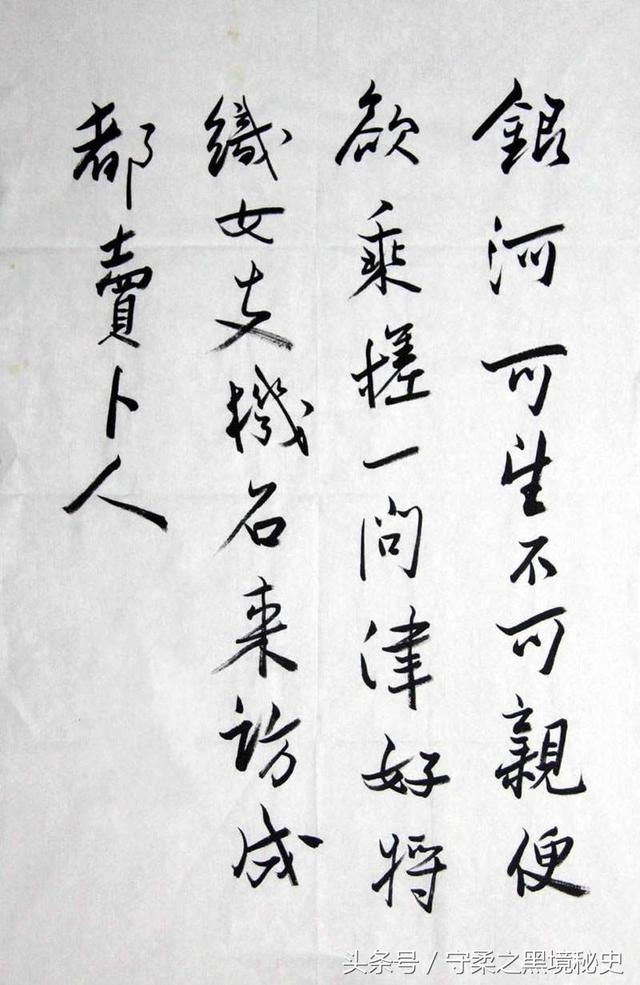 銀河可望不可親便
欲乘槎一問津好將
織女支機石来訪成
都賣卜人
头条号 / 守柔之黑境秘史